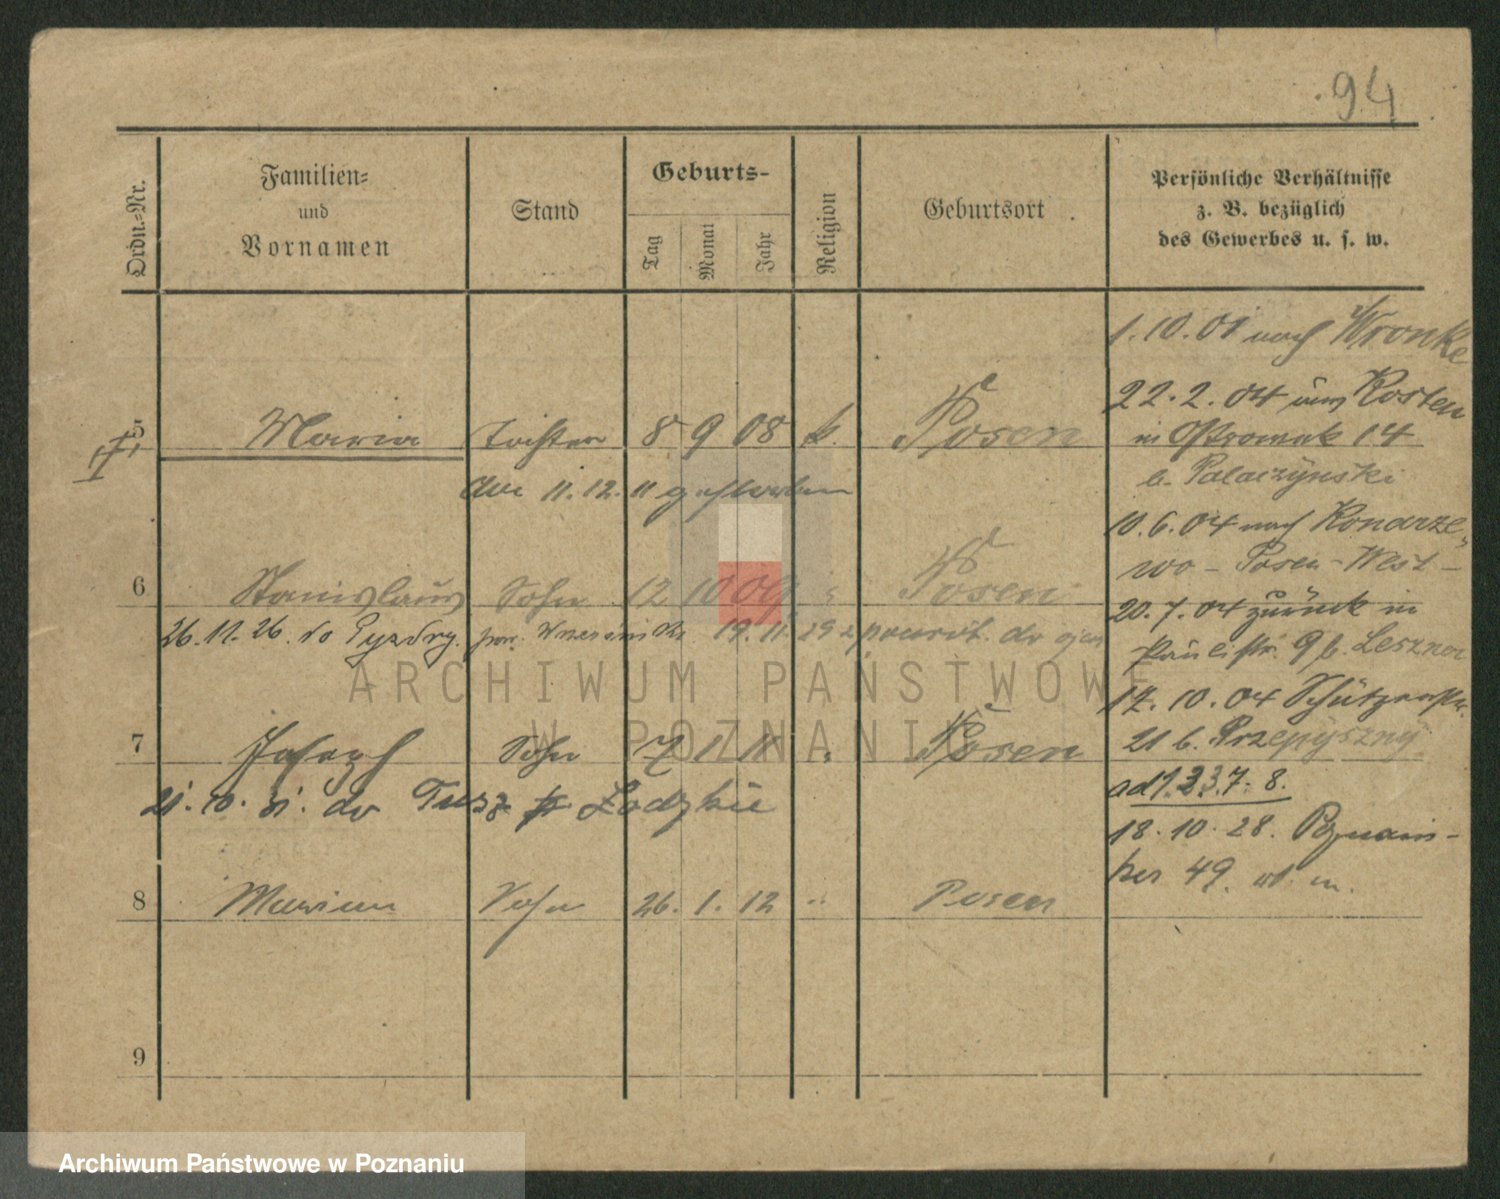 94
Ordn.-Nr.
Familien- und Vornamen
Stand
Geburts-
Tag
Monat
Jahr
Religion
Geburtsort
Persönliche Verhältnisse z. B. bezüglich des Gewerbes u. s. w.
5 Maria Tochter 8 9 08 k. Posen
am 11.12.11 gestorben
6 Stanislaus Sohn 12 10 09 " Posen
26.11.26. do Pyzdry. pow. Wrzesiński 19.11.29 z powrot. do ojca
7 Joseph Sohn 7 1 11 " Posen
21.10.31. do Łodzkie
8 Marian Sohn 26. 1. 12 " Posen
9
1.10.01 nach Wronke
22.2.04 aus Kosten
in Ostrowek 14
b. Palaczynski
10.6.04 nach Konarze-
wo - Posen-West -
20.7.04 zurück in
Paulistr. 9 b.
17.10.04 Schützenstr.
21 b. Przepyszny
ad 1.2.3.7.8.
18.10.28. Poznań-
ska 49. w. m.
ARCHIWUM PAŃSTWOWE
W POZNANIU
Archiwum Państwowe w Poznaniu